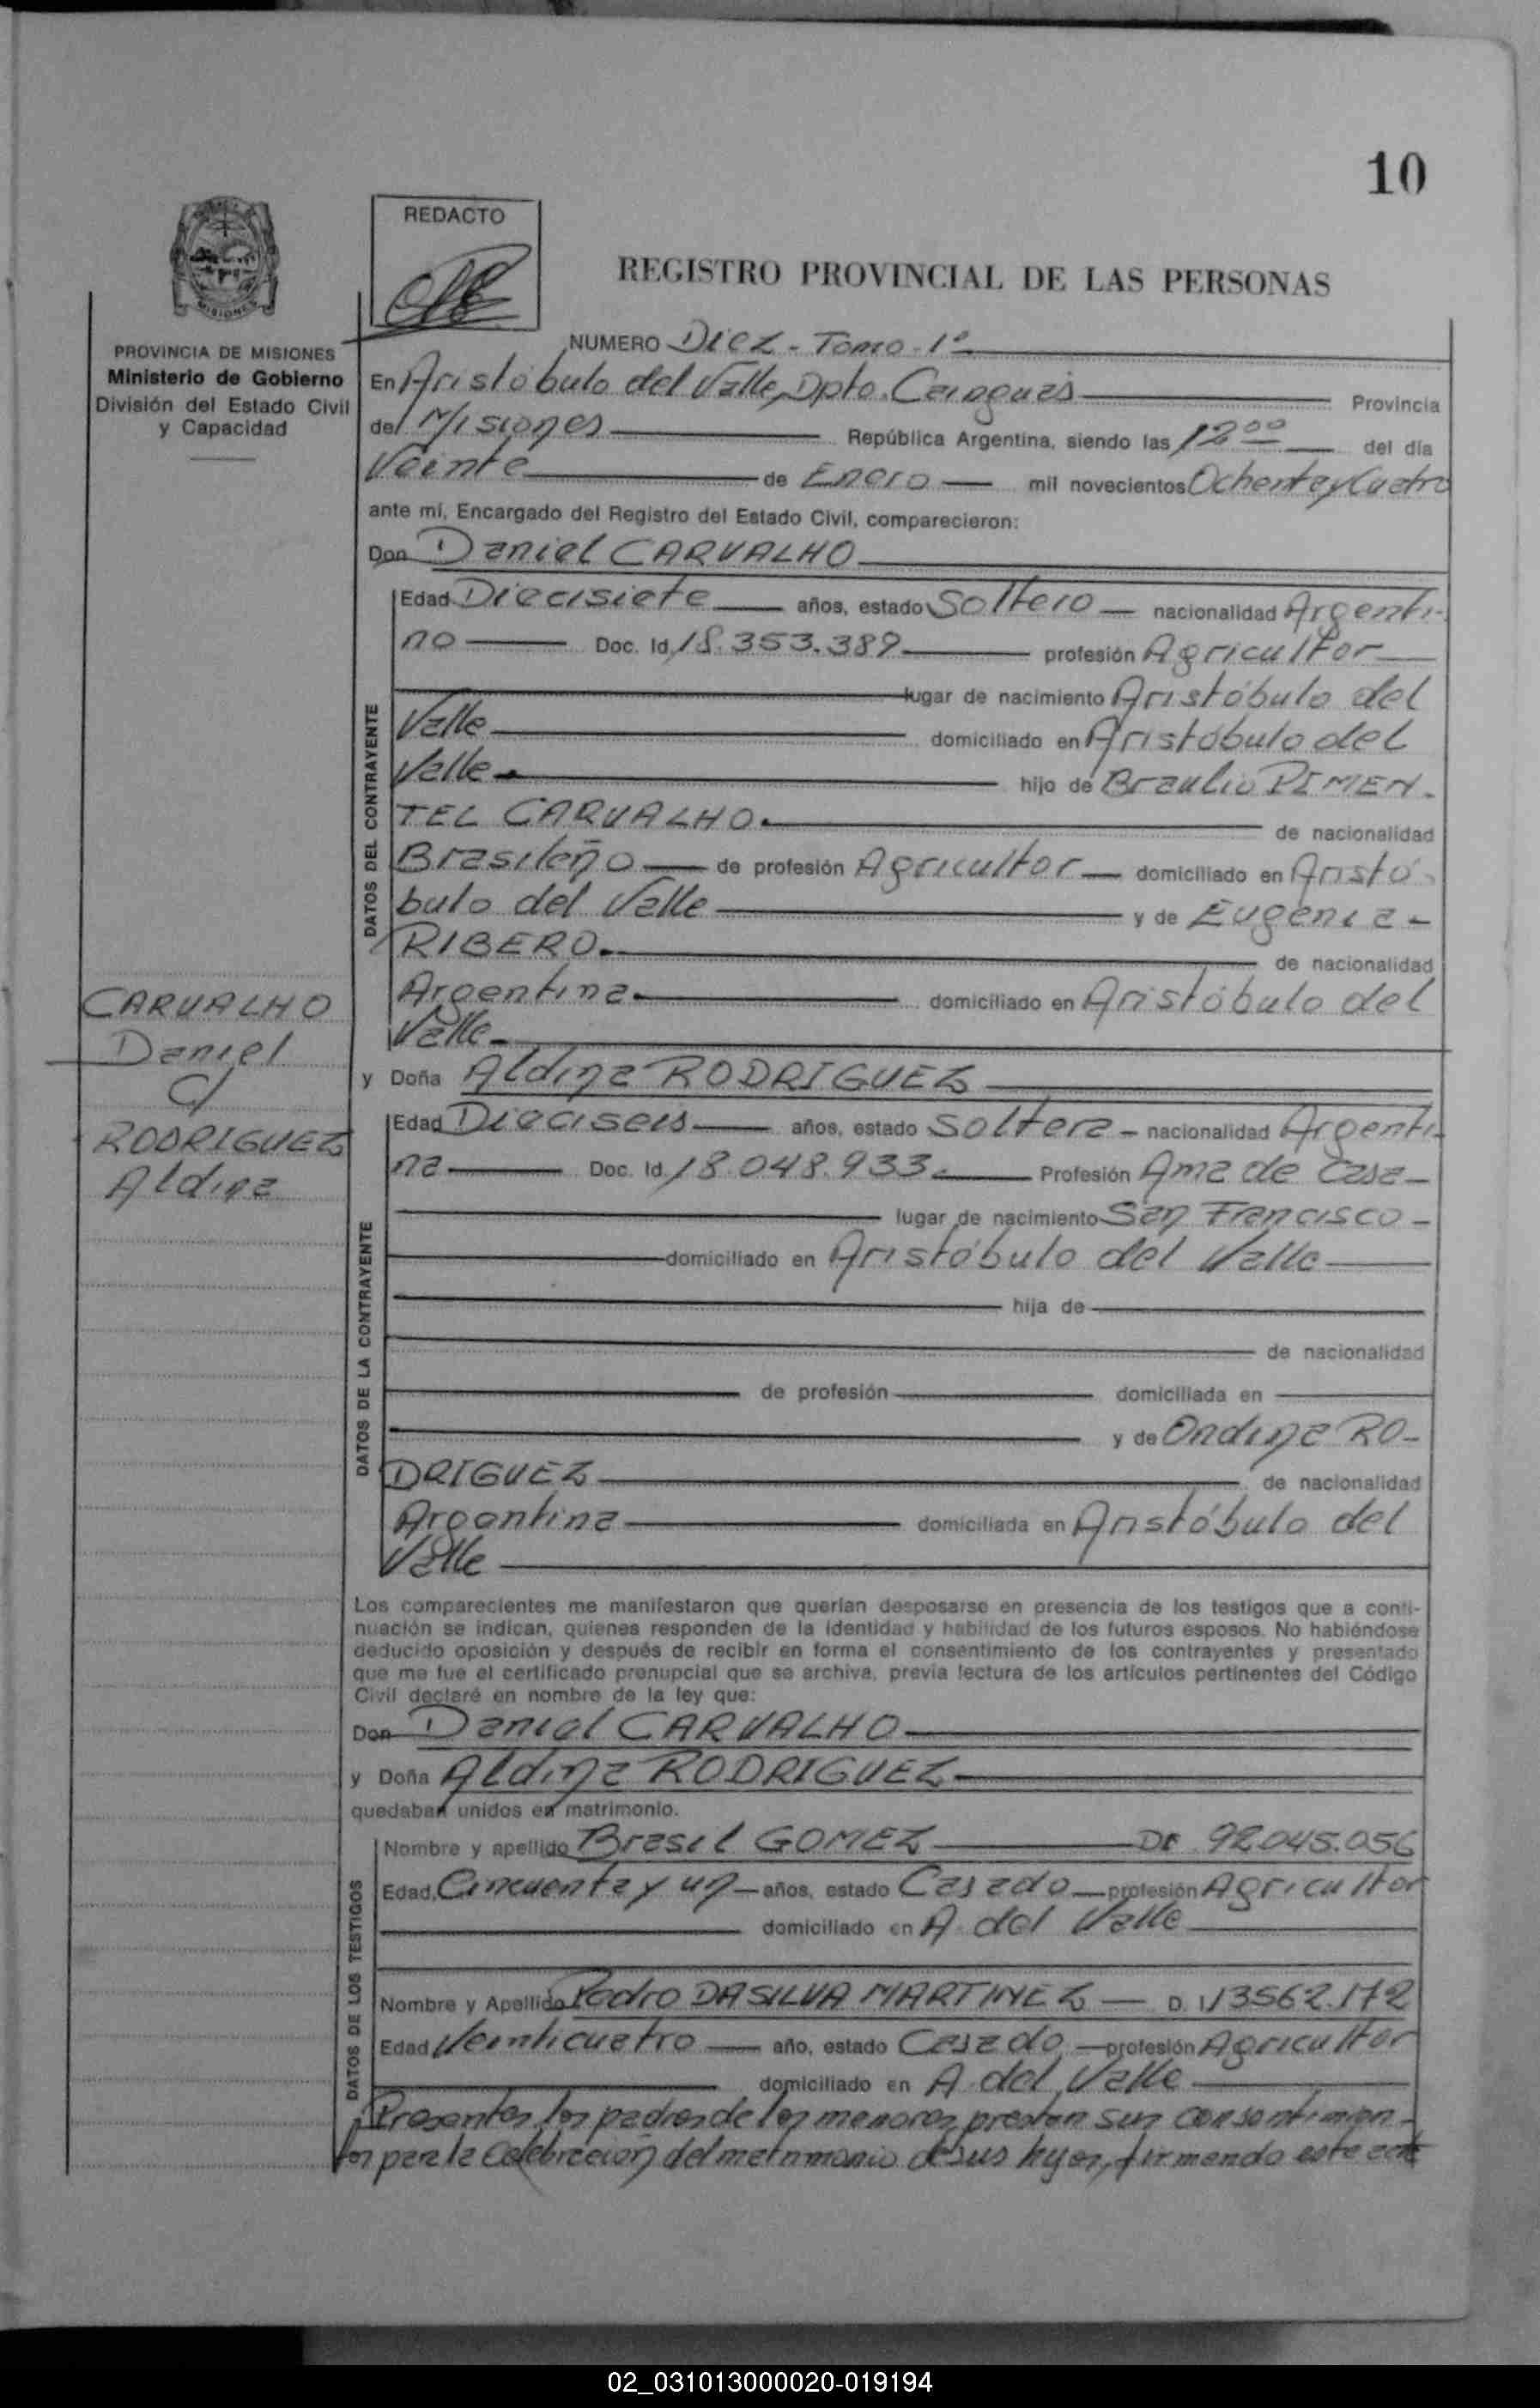 10
REDACTO
REGISTRO PROVINCIAL DE LAS PERSONAS
MISIONES
PROVINCIA DE MISIONES
Ministerio de Gobierno
División del Estado Civil
y Capacidad
NUMERO Diez - Tomo - 1º
En Aristóbulo del Valle, Dpto. Cainguás Provincia
de Misiones República Argentina, siendo las 12 00 del día
Veinte de Enero mil novecientos Ochenta y Cuatro
ante mí, Encargado del Registro del Estado Civil, comparecieron:
Don Daniel CARVALHO
DATOS DEL CONTRAYENTE
Edad Diecisiete años, estado Soltero nacionalidad Argenti-
no Doc. Id. 18.353.389 profesión Agricultor
lugar de nacimiento Aristóbulo del
Valle domiciliado en Aristóbulo del
Valle hijo de Braulio PIMEN-
TEL CARVALHO. de nacionalidad
Brasileño de profesión Agricultor domiciliado en Aristó-
bulo del Valle y de Eugenia -
RIBERO. de nacionalidad
Argentina domiciliado en Aristóbulo del
Valle
CARVALHO
Daniel
C/
RODRIGUEZ
Aldina
y Doña Aldina RODRIGUEZ
DATOS DE LA CONTRAYENTE
Edad Dieciseis años, estado Soltera - nacionalidad Argenti-
na Doc. Id. 18.048.933. Profesión Ama de Casa -
lugar de nacimiento San Francisco -
domiciliado en Aristóbulo del Valle
hija de
de nacionalidad
de profesión domiciliada en
y de Ondina RO-
DRIGUEZ de nacionalidad
Argentina domiciliada en Aristóbulo del
Valle
Los comparecientes me manifestaron que querían desposarse en presencia de los testigos que a conti-
nuación se indican, quienes responden de la identidad y habilidad de los futuros esposos. No habiéndose
deducido oposición y después de recibir en forma el consentimiento de los contrayentes y presentado
que me fue el certificado prenupcial que se archiva, previa lectura de los artículos pertinentes del Código
Civil declaré en nombre de la ley que:
Don Daniel CARVALHO
y Doña Aldina RODRIGUEZ
quedaban unidos en matrimonio.
DATOS DE LOS TESTIGOS
Nombre y apellido Brasil GOMEZ DI 92.045.056
Edad Cincuenta y un años, estado Casado profesión Agricultor
domiciliado en A. del Valle
Nombre y Apellido Pedro DASILVA MARTINEZ D. I. 13562.172
Edad Veinticuatro año, estado Casado profesión Agricultor
domiciliado en A. del Valle
Presentes los padres de los menores prestan sus consentimien-
tos para la celebración del matrimonio de sus hijos, firmando este acta
02_031013000020-019194